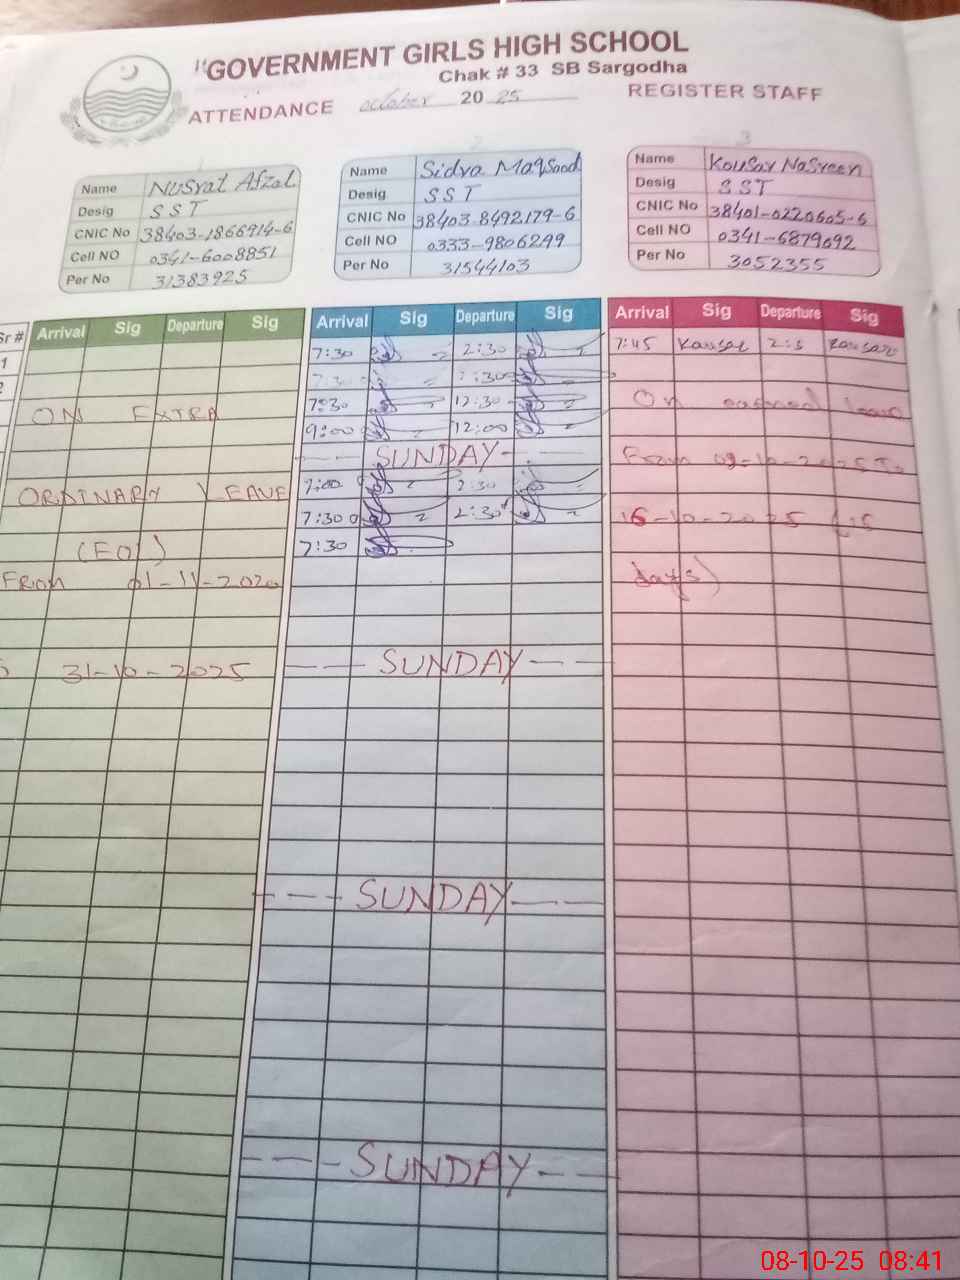 GOVERNMENT GIRLS HIGH SCHOOL
Chak # 33 SB Sargodha
ATTENDANCE october 20 25 REGISTER STAFF
1 2 3
Name Nusrat Afzal
Desig SST
CNIC No 38403-1866914-6
Cell NO 0341-6008851
Per No 31383925
Name Sidra Maqsood
Desig SST
CNIC No 38403-8492179-6
Cell NO 0333-9806299
Per No 31544103
Name Kousar Nasreen
Desig SST
CNIC No 38401-0220605-6
Cell NO 0341-6879092
Per No 3052355
Sr # Arrival Sig Departure Sig
1
2
ON EXTRA
ORDINARY LEAVE
(EOL)
FROM 01-11-2020
31-10-2025
Arrival Sig Departure Sig
7:30 2:30
7:30
7:30 12:30
9:00 12:00
SUNDAY
7:00 2:30
7:30 2:30
7:30
SUNDAY
SUNDAY
SUNDAY
Arrival Sig Departure Sig
7:45 Kausar Kausar
On leave
From
16-10-2025
days)
08-10-25 08:41